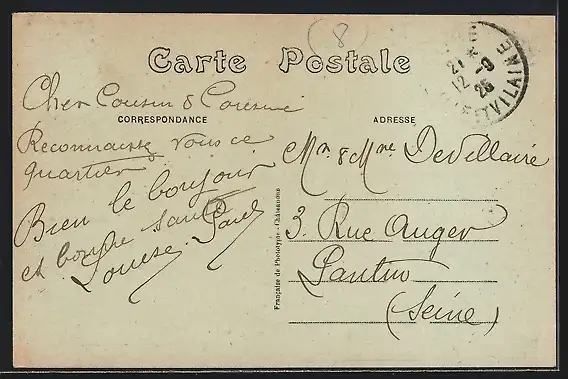 (8
Carte Postale
21 *
12 -9
25
ET VILAINE
CORRESPONDANCE
ADRESSE
Cher Cousin & Cousine
Reconnaissez vous ce
quartier
Bien le bonjour
et bonne santé
Louise. Paul
Française de Phototypie - Châteauneuf
Mr. & Mme Devillaire
3. Rue Auger
Pantin
(Seine)